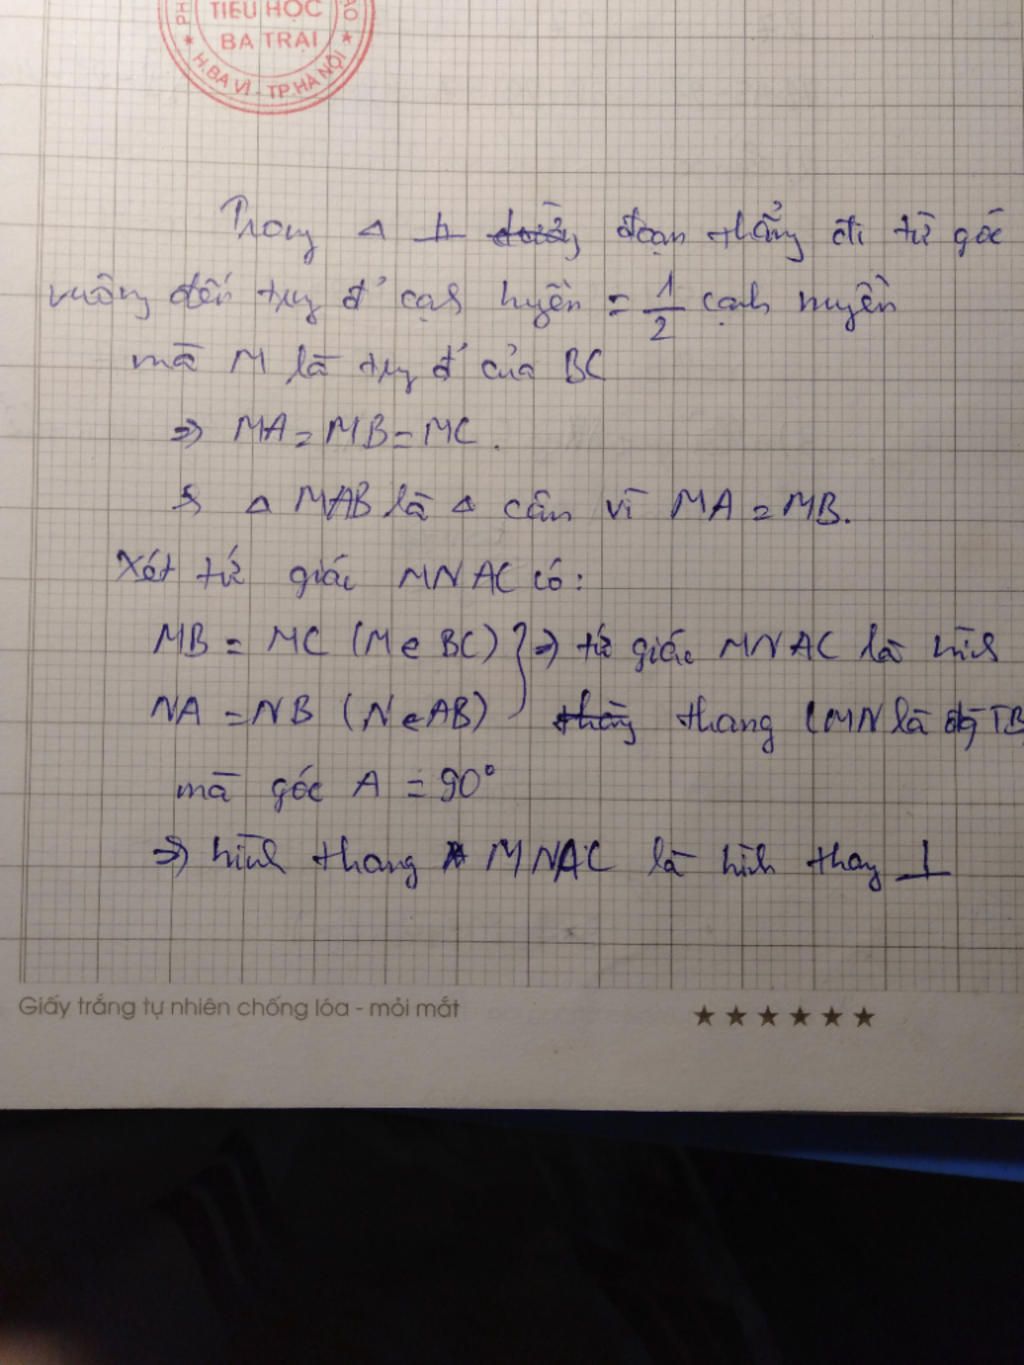 TIỂU HỌC
BA TRẠI
★ H.BA VÌ - TP.HÀ NỘI ★
Trong Δ ⊥ đoạn thẳng đi từ góc
vuông đến trg đ' cạnh huyền = 1/2 cạnh huyền
mà M là trg đ' của BC
=> MA = MB = MC.
Δ MAB là Δ cân vì MA = MB.
Xét tứ giác MNAC có:
MB = MC (M∈BC) } => tứ giác MNAC là hình
NA = NB (N∈AB) thang (MN là đg TB
mà góc A = 90°
=> hình thang MNAC là hình thang ⊥
Giấy trắng tự nhiên chống lóa - mỏi mắt
★★★★★★